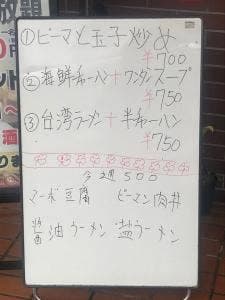 放題
①ピーマと玉子炒め
¥700
②海鮮チャーハン+ワンタンスープ
¥750
③台湾ラーメン+半チャーハン
¥750
今週500
マーボ豆腐 ピーマン肉丼
醤油ラーメン 塩ラーメン